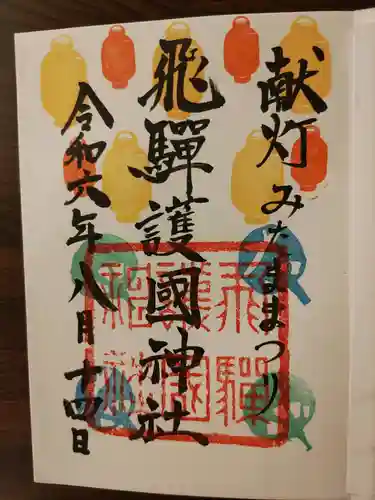 献灯みたままつり
飛騨護國神社
令和六年八月十四日
飛騨
護國
神社